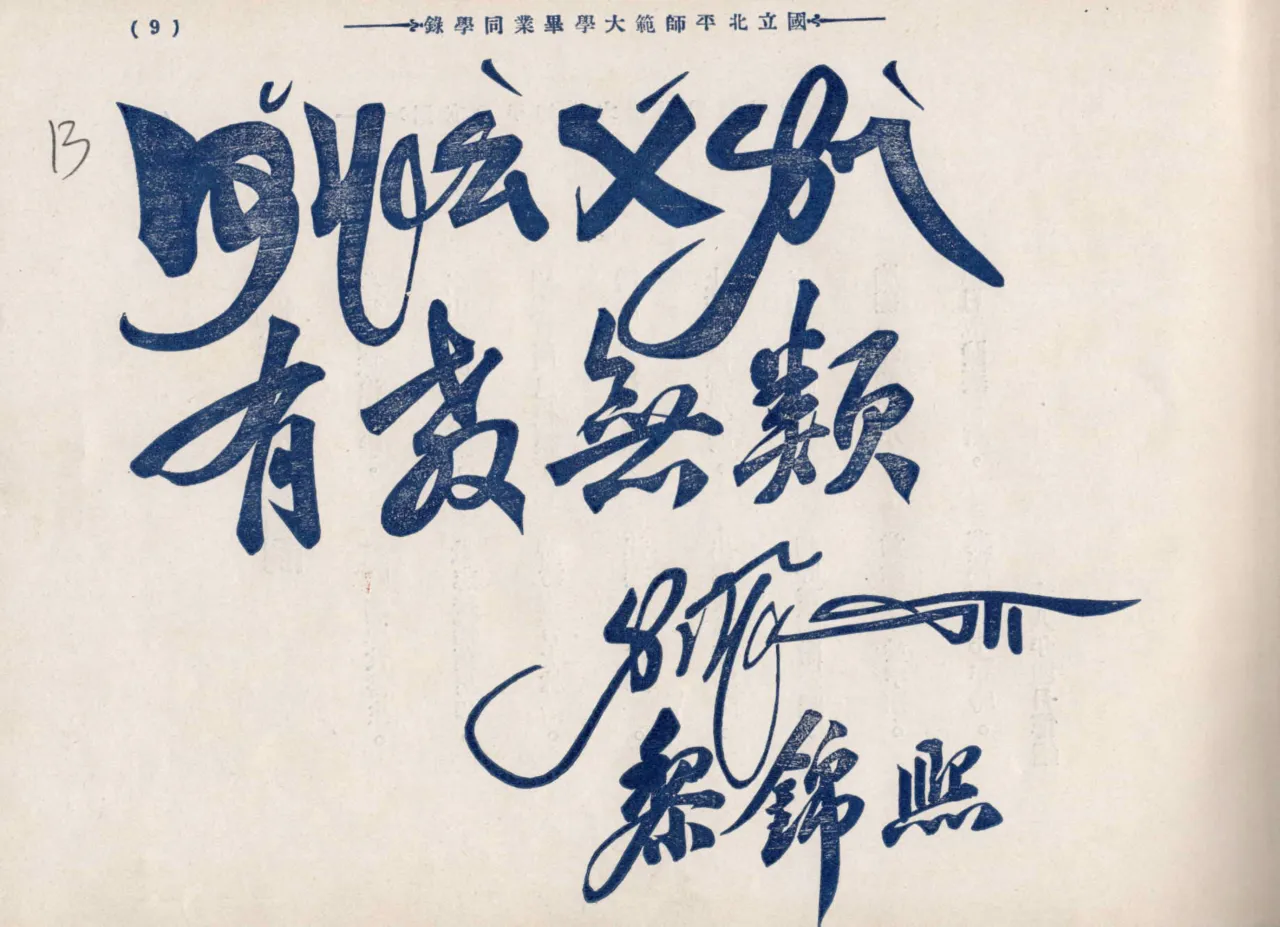 國立北平師範大學畢業同學錄
(9)
13
ㄧㄡˇ ㄐㄧㄠˋ ㄨˊ ㄌㄟˋ
有教無類
黎錦熙